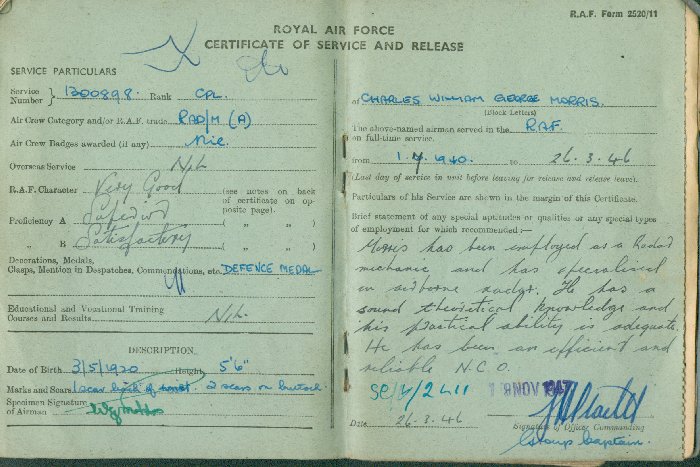 R.A.F. Form 2520/11
ROYAL AIR FORCE
CERTIFICATE OF SERVICE AND RELEASE
SERVICE PARTICULARS
Service Number } 1300898. Rank CPL.
Air Crew Category and/or R.A.F. trade RAD/M (A)
Air Crew Badges awarded (if any) Nil.
Overseas Service NIL
R.A.F. Character Very Good (see notes on back
of certificate on op-
posite page).
Proficiency A ( " " )
" B Satisfactory ( " " )
Decorations, Medals,
Clasps, Mention in Despatches, Commendations, etc. DEFENCE MEDAL
Educational and Vocational Training
Courses and Results NIL.
DESCRIPTION.
Date of Birth 3/5/1920 Height 5'6"
Marks and Scars 1 scar back of 2 scars on
Specimen Signature
of Airman
of CHARLES WILLIAM GEORGE MORRIS.
(Block Letters)
The above-named airman served in the R.A.F.
on full-time service,
from 1.7.1940. to 26.3.46
(Last day of service in unit before leaving for release and release leave).
Particulars of his Service are shown in the margin of this Certificate.
Brief statement of any special aptitudes or qualities or any special types
of employment for which recommended :—
Morris has been employed as a Radar
mechanic and has specialised
in airborne radar. He has a
sound theoretical knowledge and
his practical ability is adequate.
He has been an efficient and
reliable N.C.O.
NOV 1947
Date 26.3.46
Signature of Officer Commanding
Group Captain.